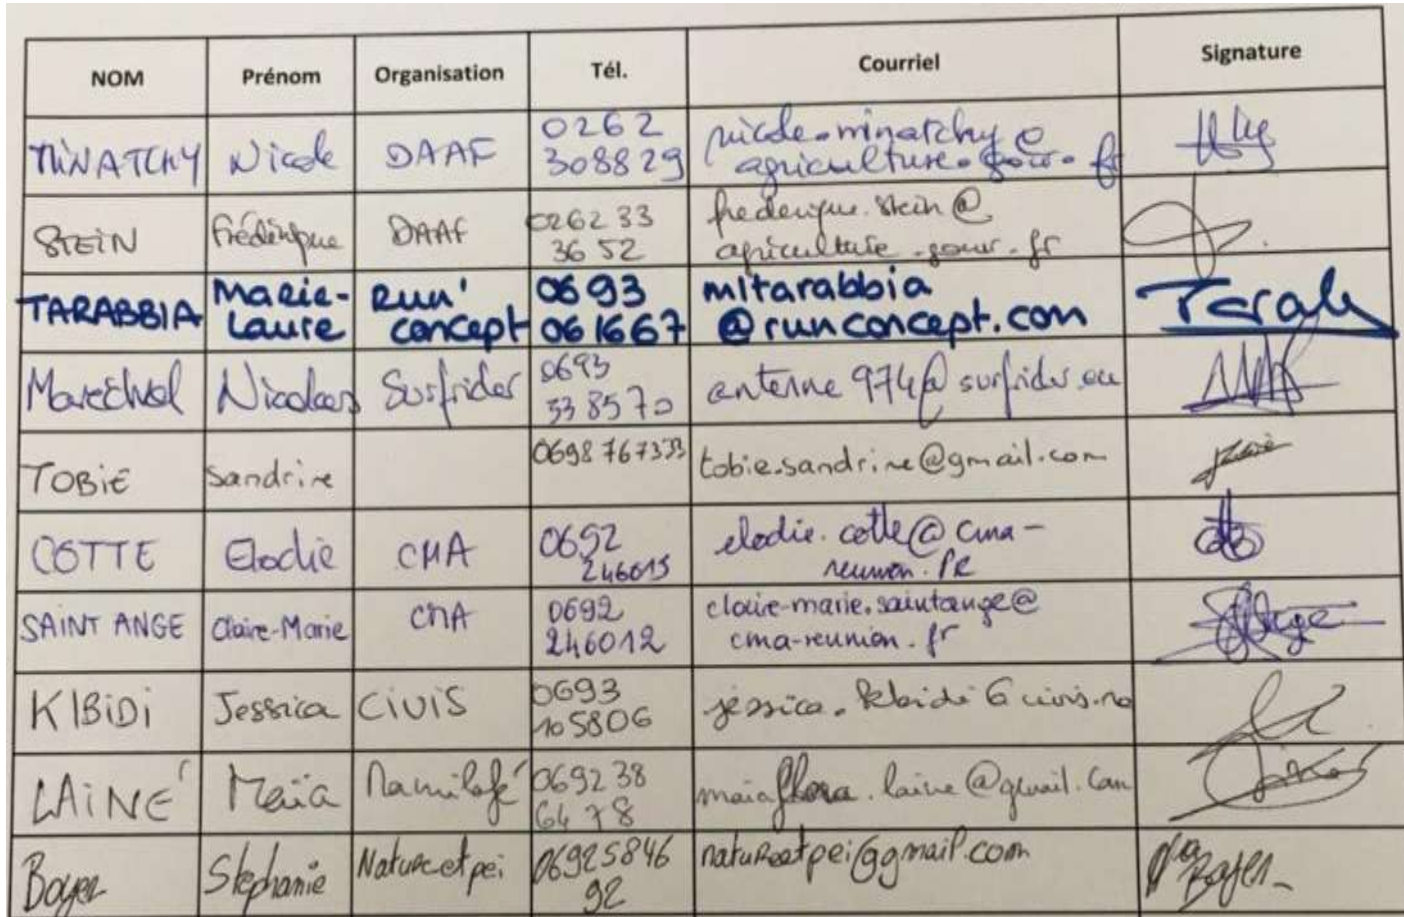 NOM Prénom Organisation Tél. Courriel Signature
MINATCHY Nicole DAAF 0262 308829 nicole.minatchy@ agriculture.gouv.fr
STEIN Frédérique DAAF 0262 33 36 52 frederique.stein@ agriculture.gouv.fr
TARABBIA Marie-Laure Run'concept 0693 061667 mltarabbia @runconcept.com
Maréchal Nicolas Surfrider 0693 33 85 70 antenne974@surfrider.eu
TOBIE Sandrine 0698 767333 tobie.sandrine@gmail.com
COTTE Elodie CMA 0692 246015 elodie.cotte@cma-reunion.fr
SAINT ANGE Claire-Marie CMA 0692 246012 claire-marie.saintange@ cma-reunion.fr
KIBIDI Jessica CIVIS 0693 105806 jessica.
LAINÉ Maïa 0692 38 64 78 maiaflora.laine@gmail.com
Boyer Stéphanie Nature et pei 06925846 92 natureetpei@gmail.com Boyer